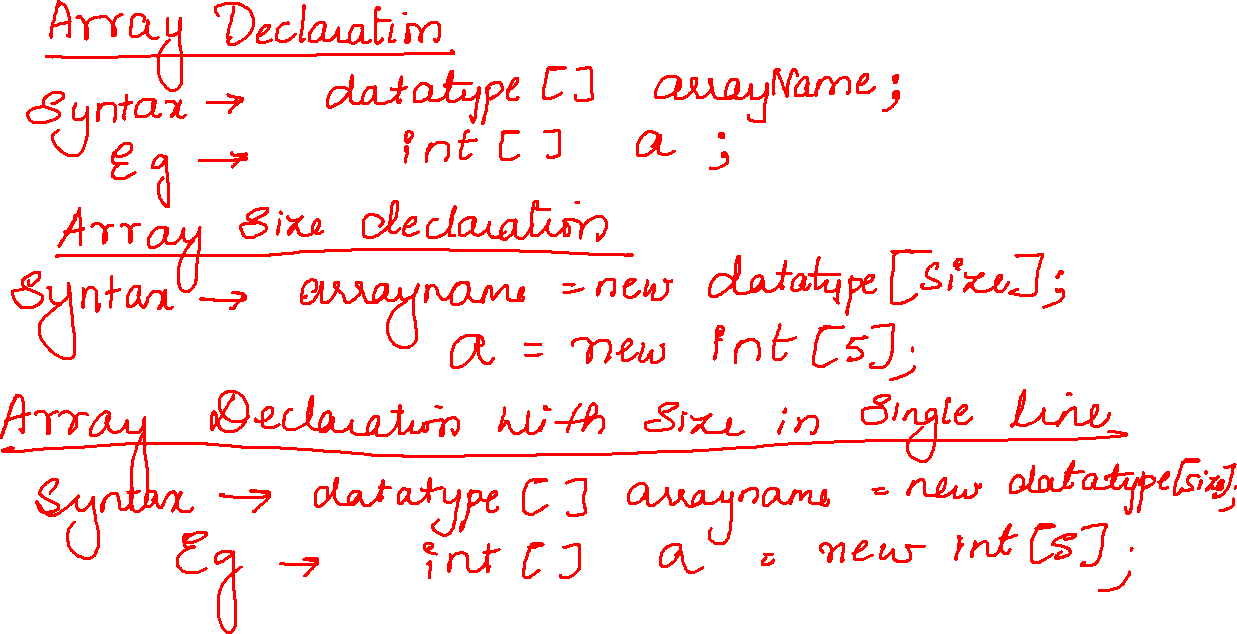 Array Declaration
Syntax → datatype [] arrayName;
Eg → int [] a ;
Array Size declaration
Syntax → arrayname = new datatype [Size];
a = new int [5];
Array Declaration With Size in Single line
Syntax → datatype [] arrayname = new datatype[size];
Eg → int [] a = new int [5];